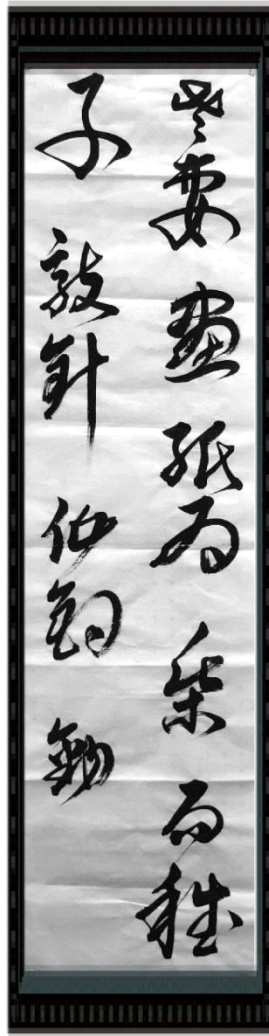 老妻畫紙為棊局稚
子敲針作釣鉤